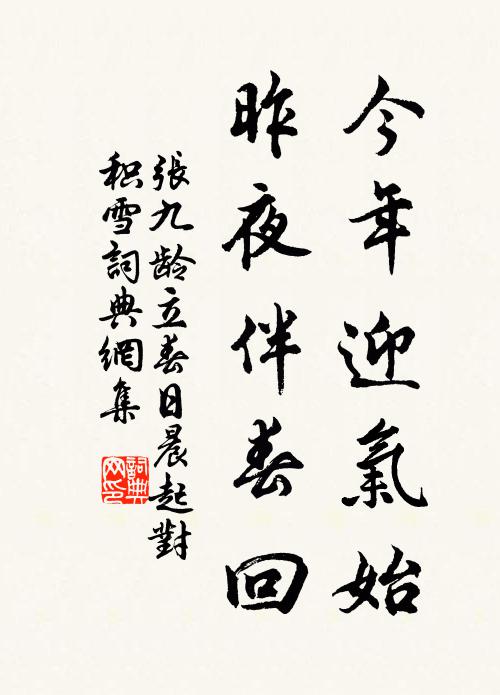 今年迎氣始
昨夜伴春回
張九齡立春日晨起對
积雪詞典網集
詞典网印